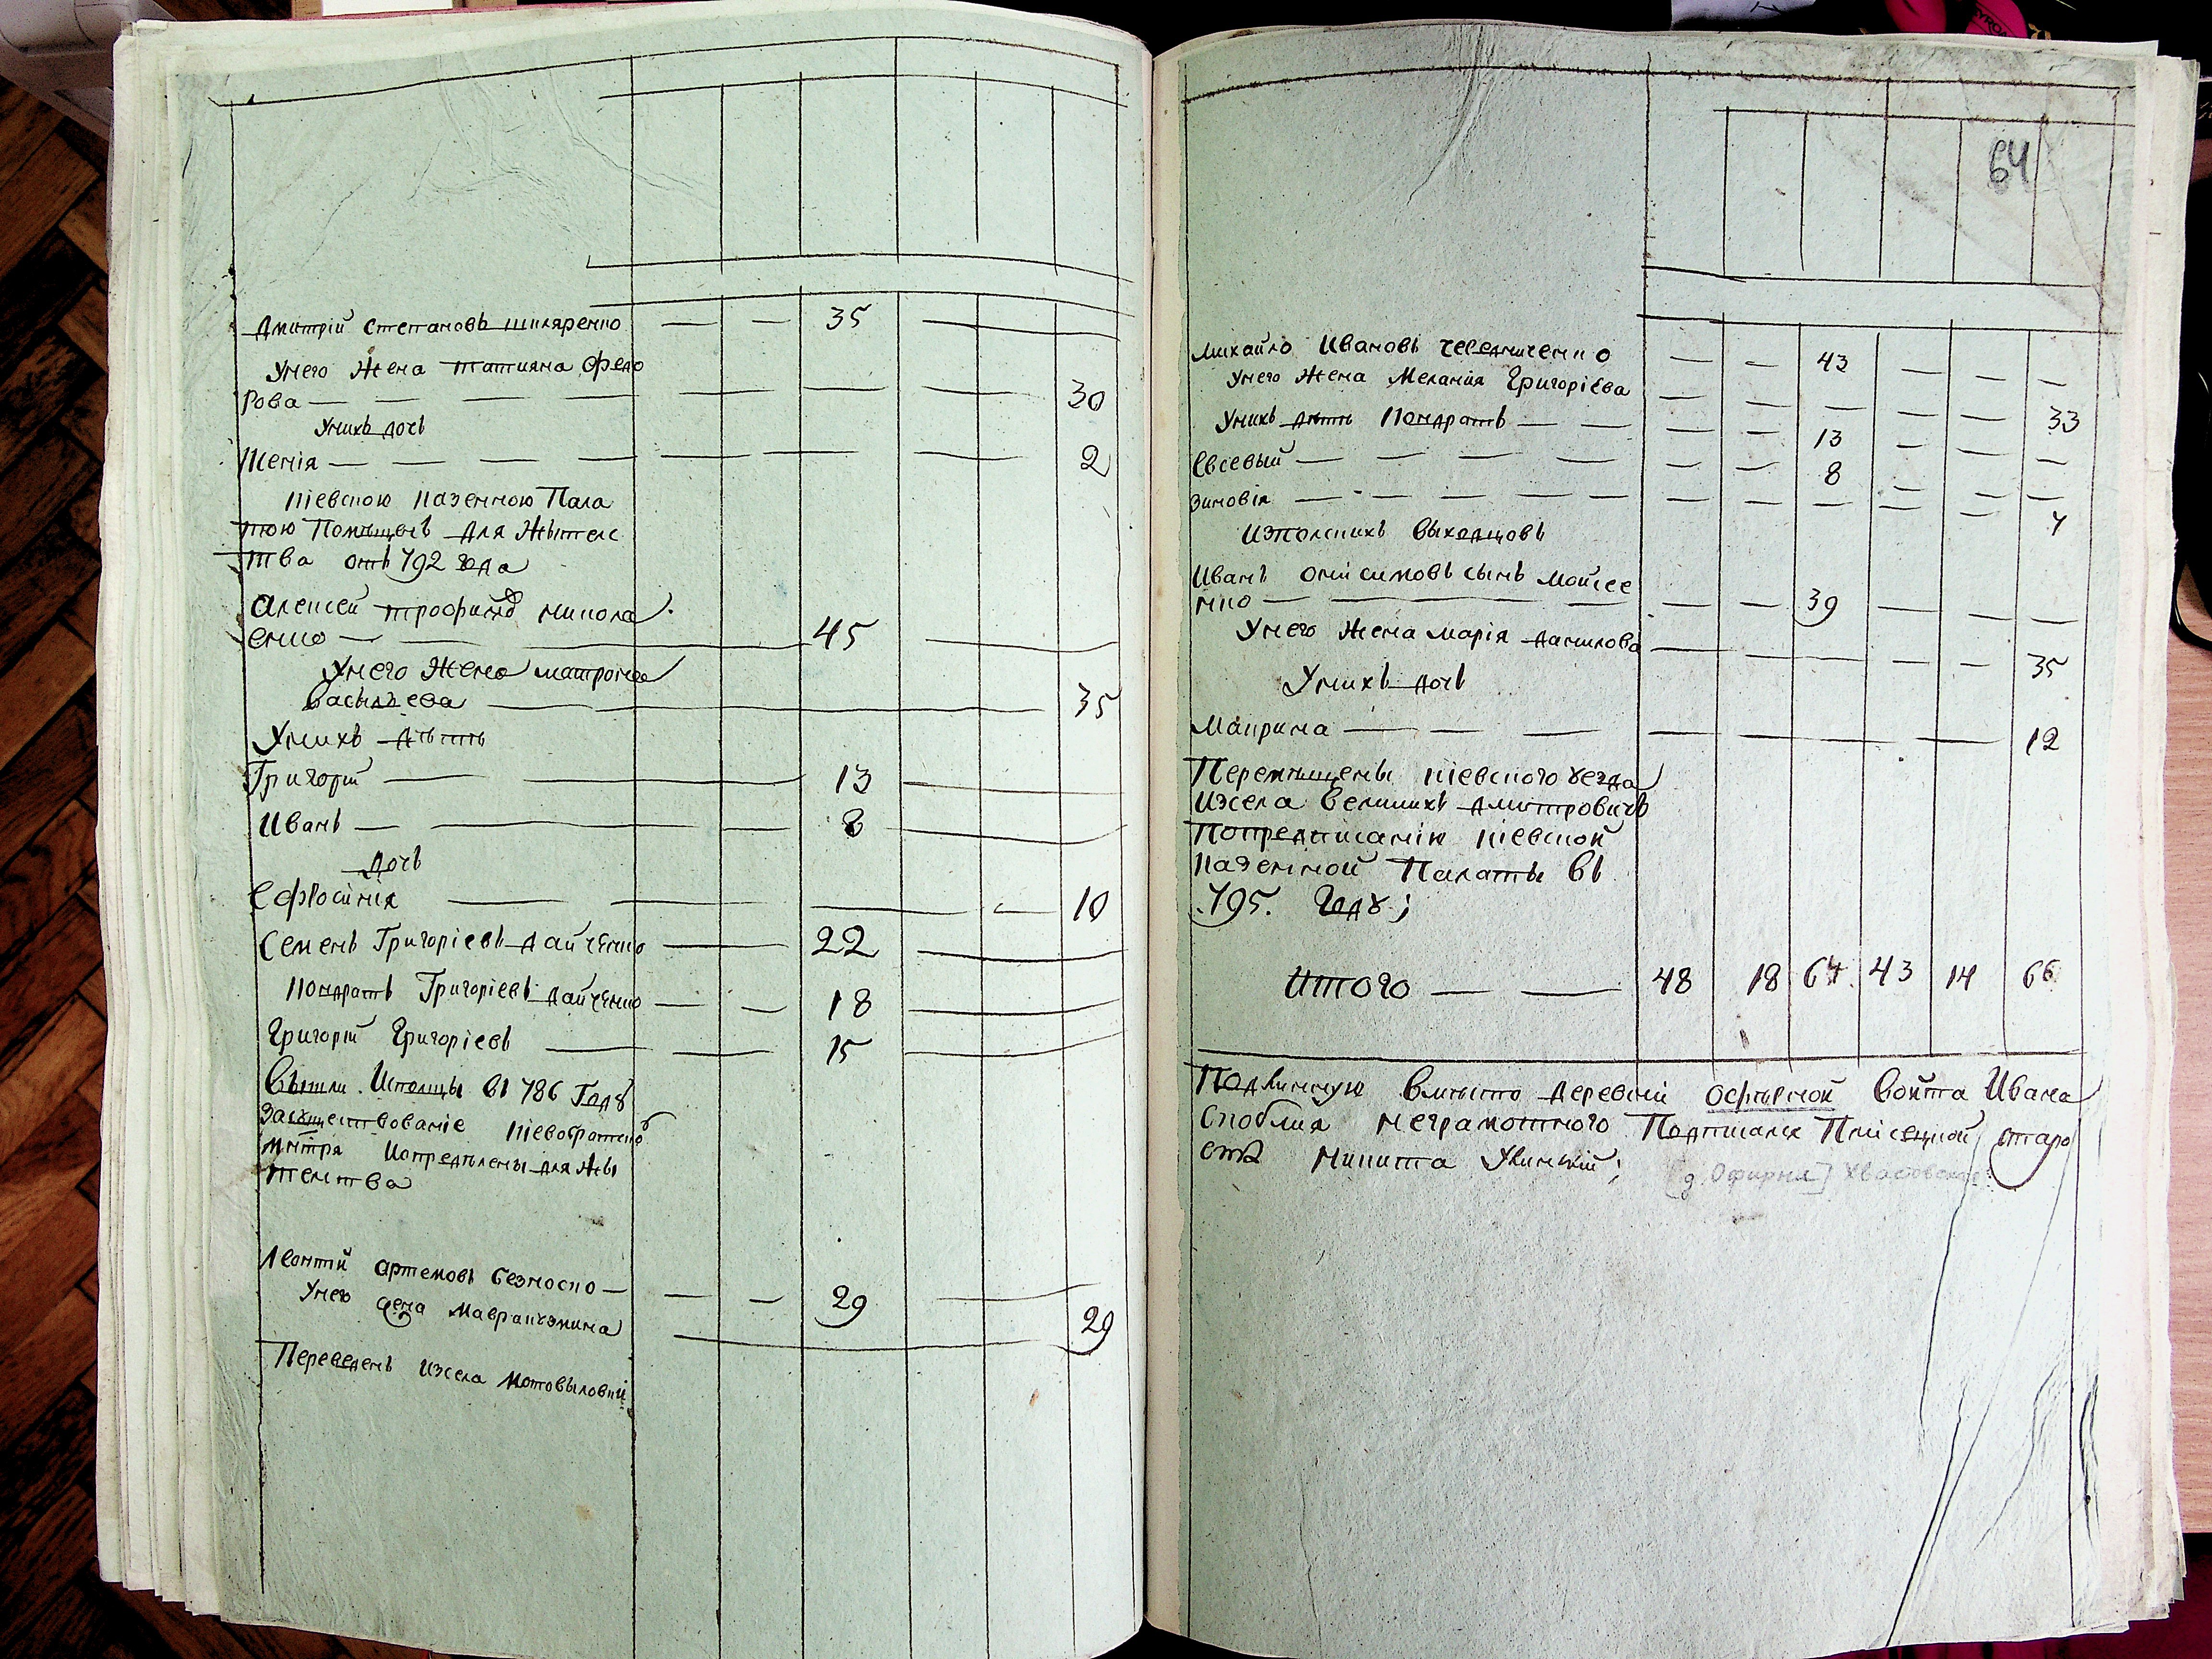 Дмитрій Степановъ шкляренко — — 35 — —
Унего Жена татияна Федо
рова — — — — — — — — 30
Унихъ дочь
Ксенія — — — — — — — — 2
Кіевскою Казенною Пала
тою Помѣщенъ Для Жытелс
тва отъ 792 года
Алексей трофимов никола
енко — — 45 —
Унего Жена матрона
Васылъева — 35
Унихъ дѣти
Григорій — 13 —
Иванъ — — — 8 —
Дочь
Ефросинія — — — 10
Семенъ Григоріевъ дайченко — 22 —
Кондратъ Григоріевъ дайченко — — 18 —
Григорій Григоріевъ — — 15 —
Вышли Исполщы въ 786 Годꙋ
митра Иопределены для жы
телства
Леонтій артемовъ безноско — — — 29 —
Унего жена Мавра 29
Переведенъ изсела мотовыловки
64
Михайло Ивановъ — — 43 — — —
Унего Жена Меланія Григоріева — — — — — 33
Унихъ дѣти Кондратъ — — — — 13 — —
Евсевый — — — — — — 8 — —
Зиновія — — — — — — — — — — 7
Изполскихъ выходцовъ
Иванъ онисимовъ сынъ мойсее
нко — — — — — 39 — — —
Унего Жена марія данилова — — — — 35
Унихъ дочь
Макрина — — — — — — — 12
Перемѣщены кіевского уезда
Изсела великихъ дмитровичъ
Попредписанію кіевской
Казенной Палаты въ
795. Годꙋ;
Итого — — 48 18 64 43 14 66
Подлинную вместо деревни Офырной войта Ивана
Скобля неграмотного Подписался
Никита
[д. Офирня]